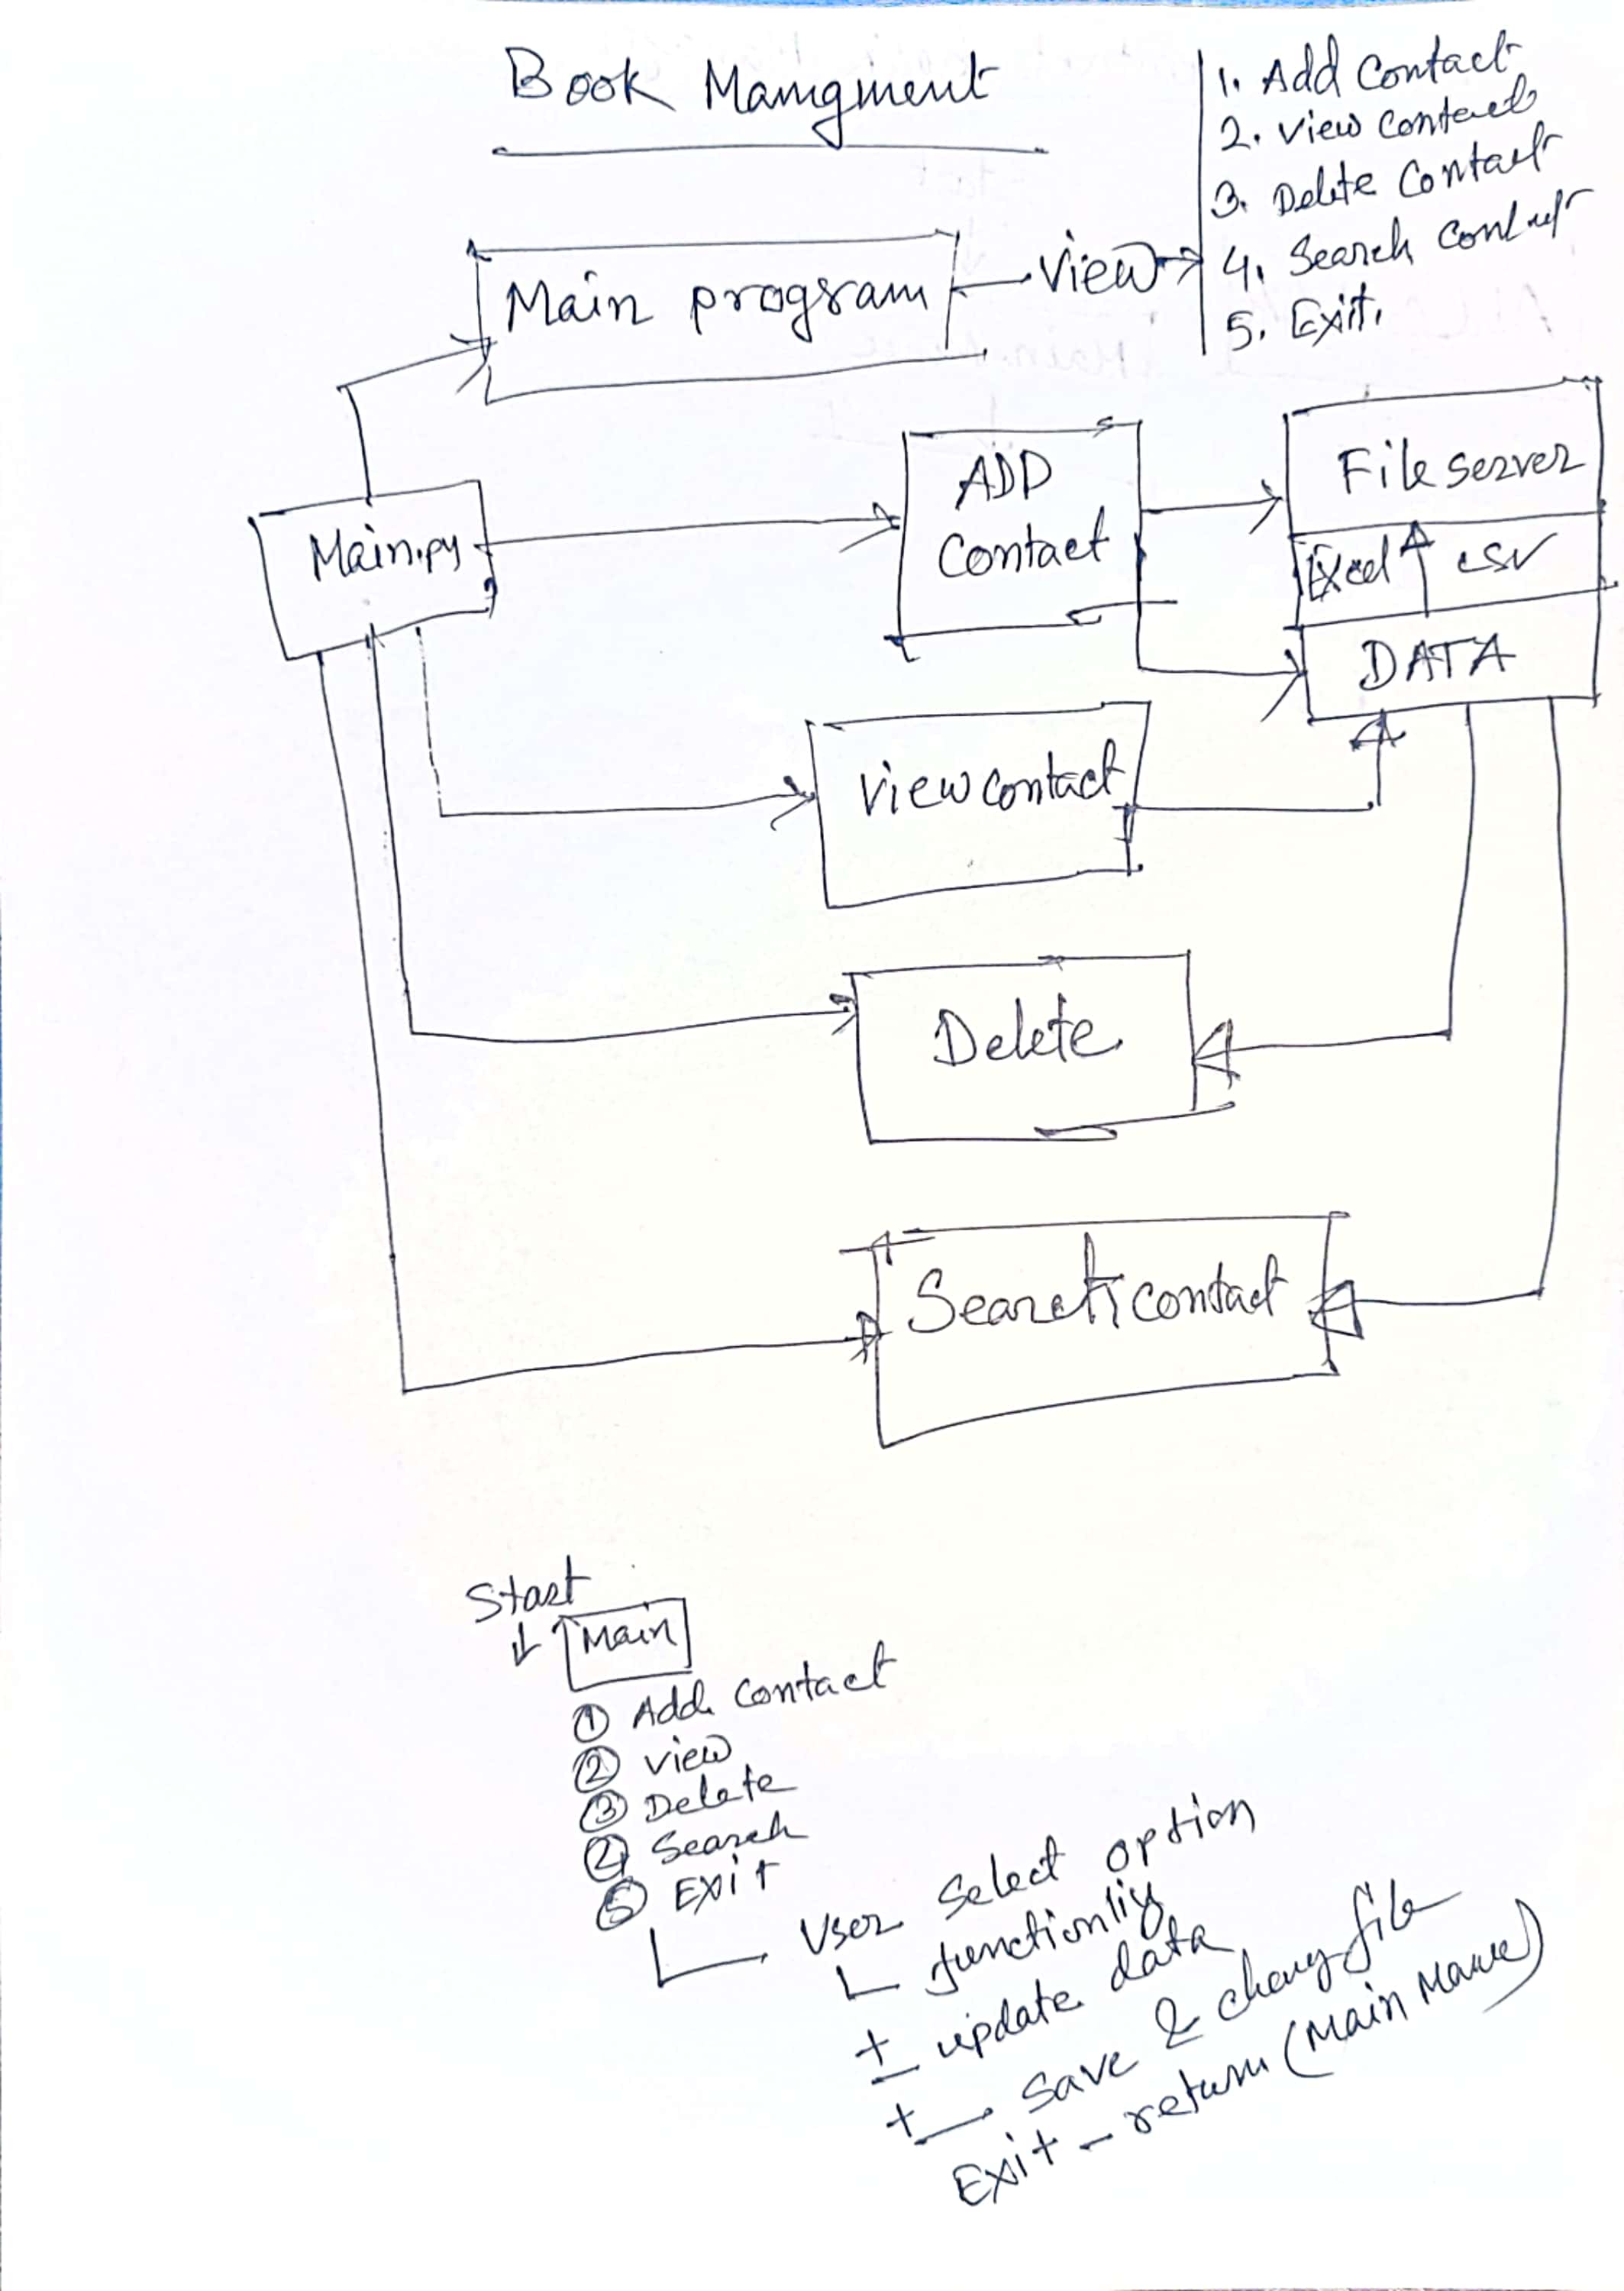 Book Mangment
1. Add Contact
2. view contact
3. Delete Contact
4. Search contact
5. Exit.
Main program
view
Main.py
ADD
Contact
File server
Excel csv
DATA
view contact
Delete
Search contact
Start
Main
① Add Contact
② view
③ Delete
④ Search
⑤ Exit
User select option
functionliy
update data
Save & file
Exit - return (Main